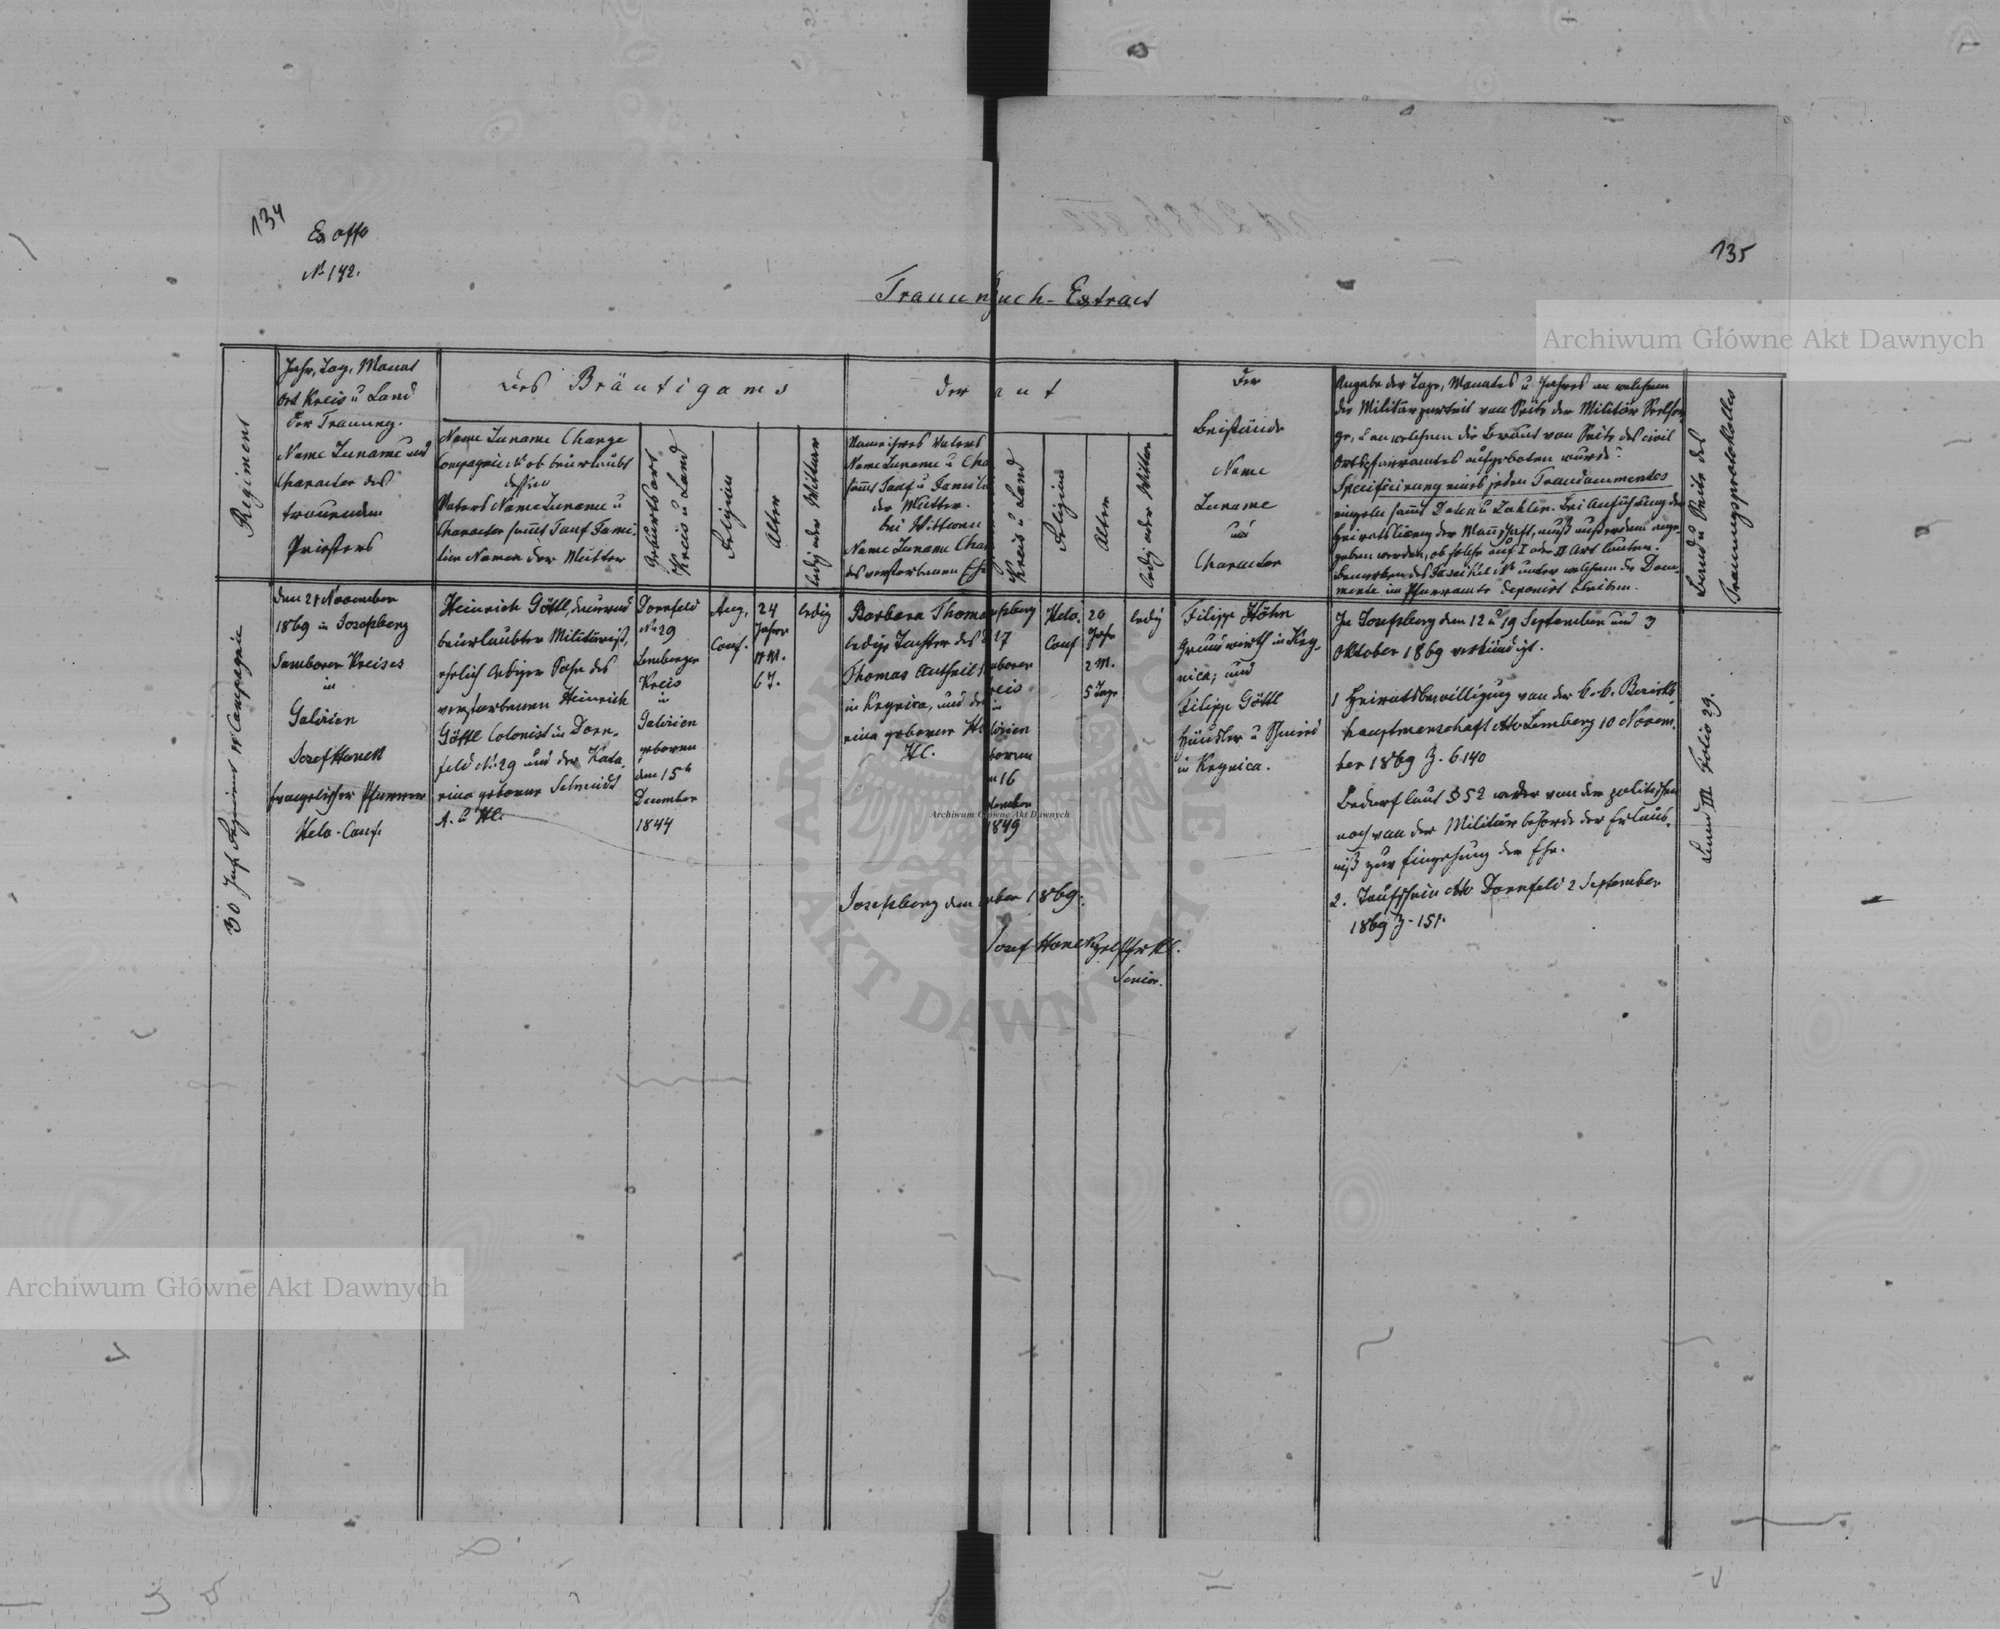 134
Ex offo
№ 142.
135
Trauungsbuch-Extract
Archiwum Główne Akt Dawnych
Regiment
Jahr, Tag, Monat
Ort Kreis u Land
der Trauung.
Name Zuname und
Character des
trauenden
Priesters
des Bräutigams
Name Zuname Charge
Compagnie № ob beurlaubt
dessen
Vaters Name Zuname u
Character samt Tauf Fami-
lien Namen der Mutter
Geburtsort
Kreis u Land
Religion
Alter
ledig oder Wittwer
der
aut
Name ihres Vaters
Name Zuname u Cha
samt Tauf u Famili
der Mutter.
bei Wittwen
Name Zuname Char
des verstorbenen Ehe
Kreis u Land
Religion
Alter
ledig oder Wittwe
der
Beistände
Name
Zuname
und
Character
Angabe der Tage, Monates u Jahres an welchem
die Militärparthei von Seite der Militär Seelsor
ge, u an welchem die Braut von Seite des civil
Ortspfarramtes aufgeboten wurde?
Specificirung eines jeden Traudocumentes
einzeln samt Daten u Zahlen. Bei Anführung der
Heirathslizenz der Mannschaft, muß außerdem ange-
geben werden, ob solche auf I oder II Art lauten.
Bemerken des Faszikel № unter welchem die Docu-
mente im Pfarramte deponirt bleiben.
Band u Seite des
Trauungsprotokolles
30 Inf. Regiment 11 Compagnie
den 21 November
1869 in Josefsberg
Samborer Kreises
in
Galizien
Josef Haneck
evangelischer Pfarrer
Helv. Conf.
Heinrich Göttl, dauernd
beurlaubter Militärist,
ehelich lediger Sohn des
verstorbenen Heinrich
Göttl Colonist in Dorn-
feld № 29 und der Kata-
rina geborne Schmidt
A. u Hl.
Dornfeld
№ 29
Lemberger
Kreis
in
Galizien
geboren
den 15ten
December
1844
Aug.
Conf.
24
Jahre
11 M.
6 T.
ledig
Barbara Thoma
ledige Tochter des
Thomas
in Krynica, und de
rina geborne
Hl.
fsberg
27
mborer
reis
in
lizien
boren
n 16
tember
1849
Helv.
Conf
20
Jahr
2 M.
5 Tage
ledig
Filipp Höhn
Grundwirth in Kry-
nica; und
Filipp Göttl
Häusler u Schmied
in Krynica.
In Josefsberg den 12 u 19 September und 3
Oktober 1869 verkündigt.
1 Heiratsbewilligung von der k.k. Bezirks
hauptmannschaft dto Lemberg 10 Novem-
ber 1869 Z. 6140
Bedarf laut § 52 weder von der politischen
noch von der Militärbehörde der Erlaub-
niß zur Eingehung der Ehe.
2. Taufschein dto Dornfeld 2 September
1869 Z. 151.
Band III Folio 29.
Archiwum Główne Akt Dawnych
Josefsberg den
mber 1869.
Josef Haneck
Senior.
ARCHIWUM GŁÓWNE AKT DAWNYCH
Archiwum Główne Akt Dawnych